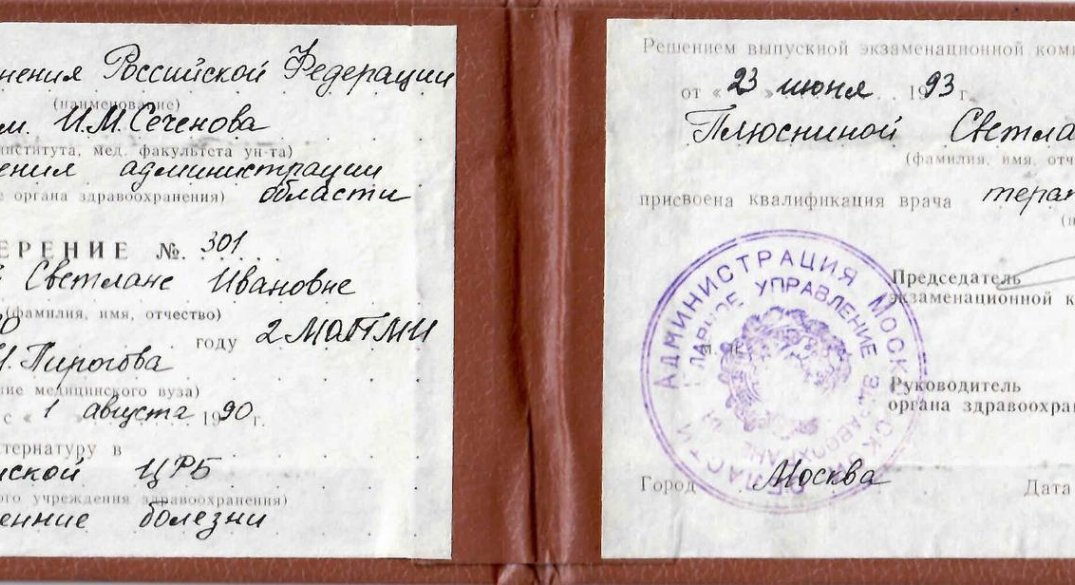 нения Российской Федерации
(наименование)
м. И.М. Сеченова
института, мед. факультета ун-та)
ения администрации
е органа здравоохранения) области
ЕРЕНИЕ №. 301
Светлане Ивановне
(фамилия, имя, отчество)
0 году 2 МОЛГМИ
И. Пирогова
ние медицинского вуза)
с « 1 августа 1990г.
тернатуру в
нской ЦРБ
ого учреждения здравоохранения)
енние болезни
Решением выпускной экзаменационной коми
от «23» июня 1993 г.
Плюсниной Светла
(фамилия, имя, отче
присвоена квалификация врача терап
Председатель
экзаменационной к
Руководитель
органа здравоохран
Город Москва Дата
АДМИНИСТРАЦИЯ МОСКОВСКОЙ ОБЛАСТИ
ГЛАВНОЕ УПРАВЛЕНИЕ ЗДРАВООХРАНЕНИЯ